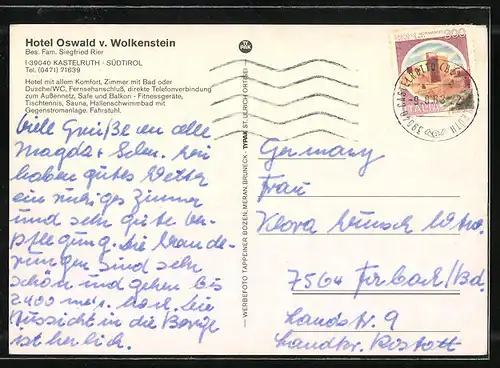 Hotel Oswald v. Wolkenstein
Bes. Fam. Siegfried Rier
I-39040 KASTELRUTH · SÜDTIROL
Tel. (0471) 71639
Hotel mit allem Komfort, Zimmer mit Bad oder
Dusche/WC, Fernsehanschluß, direkte Telefonverbindung
zum Außennetz, Safe und Balkon - Fitnessgeräte,
Tischtennis, Sauna, Hallenschwimmbad mit
Gegenstromanlage. Fahrstuhl.
Viele Grüße an alle
Magda + Wir
haben gutes Wetter
ein ruhiges Zimmer
und sehr gute Ver-
pflegung. Die Wande-
rungen sind sehr
schön und gehen bis
2400 mtr. hoch. Die
Aussicht in die Berge
ist herlich.
WERBEFOTO TAPPEINER BOZEN, MERAN, BRUNECK - TYPAK ST. ULRICH ORTISEI
TY
PAK
300
39040
Germany
Frau
Klara Wunsch
7564 Forbach/Bd.
Landstr. 9
Landkr. Rastatt